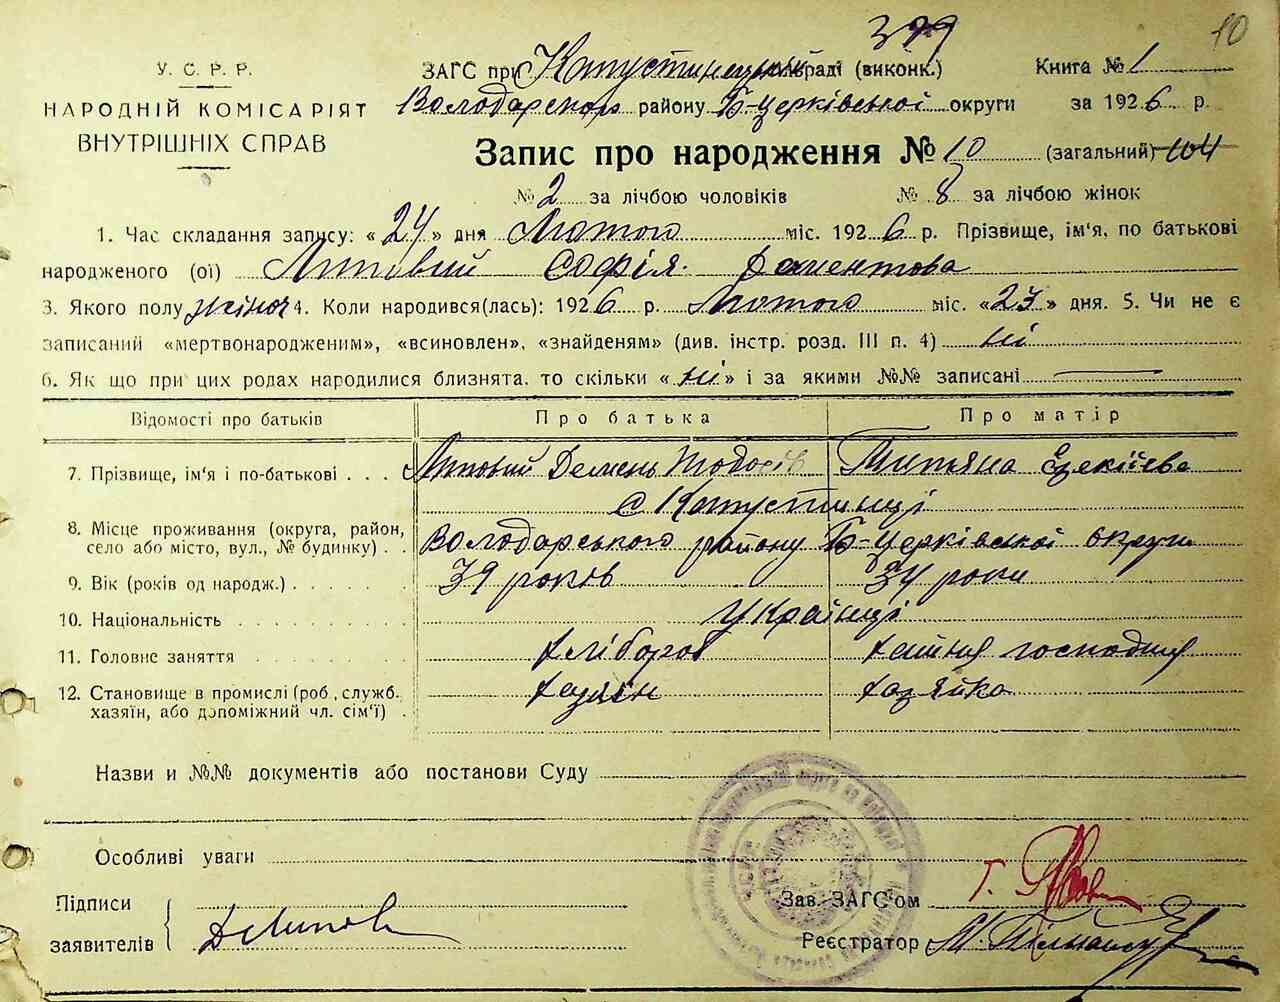 399
10
У. С. Р. Р.
НАРОДНІЙ КОМІСАРІЯТ
ВНУТРІШНІХ СПРАВ
ЗАГС при Капустинецькій раді (виконк.) Книга № 1
Володарськог району Б-Церківської округи за 1926 р.
Запис про народження № 10 (загальний) 104
№ 2 за лічбою чоловіків № 8 за лічбою жінок
1. Час складання запису: « 24 » дня Лютого міс. 1926 р. Прізвище, ім'я, по батькові
народженого (ої) Литовий Софія Дементова
3. Якого полу жіноч 4. Коли народився(лась): 1926 р. Лютого міс. «23» дня. 5. Чи не є
записаний «мертвонародженим», «всиновлен», «знайденям» (див. інстр. розд. III п. 4) ні
6. Як що при цих родах народилися близнята, то скільки «ні» і за якими №№ записані
Відомості про батьків Про батька Про матір
7. Прізвище, ім'я і по-батькові . . . Литовий Демень Тодосів Титьяна
с Капустинці
8. Місце проживання (округа, район,
село або місто, вул., № будинку) . . Володарського району Б-Церківської округи
9. Вік (років од народж.) . . . . . 39 років 34 роки
10. Національність . . . . . . . . Українці
11. Головне заняття . . . . . . . хлібороб хатня господиня
12. Становище в промислі (роб., служб.
хазяїн, або допоміжний чл. сім'ї) . хазяїн хазяйка
Назви и №№ документів або постанови Суду
Особливі уваги
Підписи
заявителів
Д Литов
Зав. ЗАГС'ом Г.
Реєстратор М.